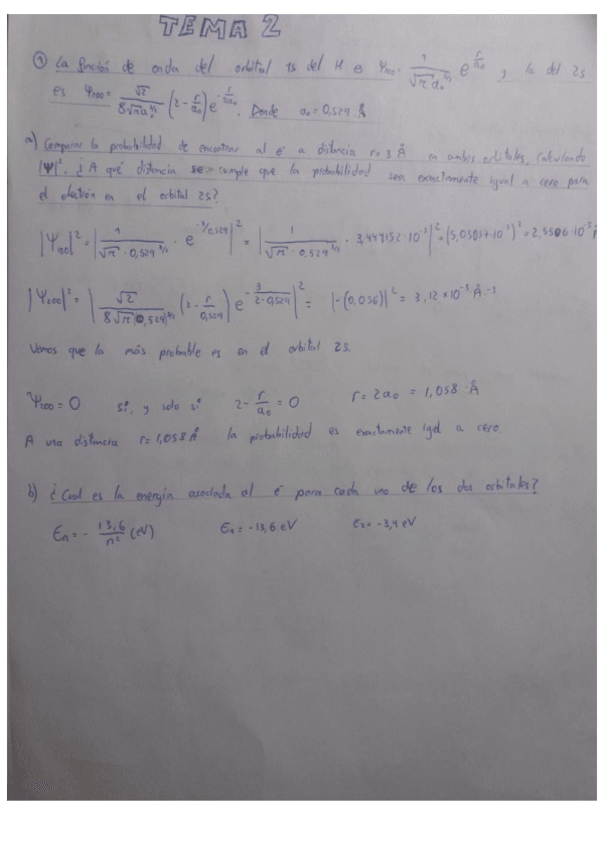 TEMA 2
① La función de onda del orbital 1s del H es Ψ₁₀₀ = 1/(√π a₀^(3/2)) e^(-r/a₀), la del 2s
es Ψ₂₀₀ = √2/(8√π a₀^(3/2)) (2 - r/a₀) e^(-r/2a₀). Donde a₀ = 0,529 Å
a) Comparar la probabilidad de encontrar al e⁻ a distancia r = 3 Å en ambos orbitales, calculando
|Ψ|². ¿A qué distancia se cumple que la probabilidad sea exactamente igual a cero para
el electrón en el orbital 2s?
|Ψ₁₀₀|² = |1/(√π · 0,529^(3/2)) · e^(-3/0,529)|² = |1/(√π · 0,529^(3/2)) · 3,447152·10⁻³|² = (5,0503·10⁻³)² = 2,5506·10⁻⁵
|Ψ₂₀₀|² = |√2/(8√π (0,529)^(3/2)) (2 - r/0,529) e^(-3/(2·0,529))|² = |-(0,056)|² = 3,12×10⁻³ Å⁻³
Vemos que la más probable es en el orbital 2s.
Ψ₂₀₀ = 0 si, y solo si 2 - r/a₀ = 0 r = 2a₀ = 1,058 Å
A una distancia r = 1,058 Å la probabilidad es exactamente igual a cero.
b) ¿Cual es la energía asociada al e⁻ para cada uno de los dos orbitales?
Eₙ = - 13,6/n² (eV) E₁ = -13,6 eV E₂ = -3,4 eV